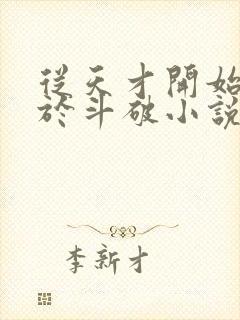 從天才開始
於斗破小說
李新才